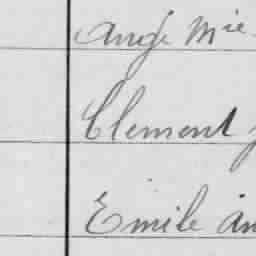 Ange Mie
Clement J
Emile An